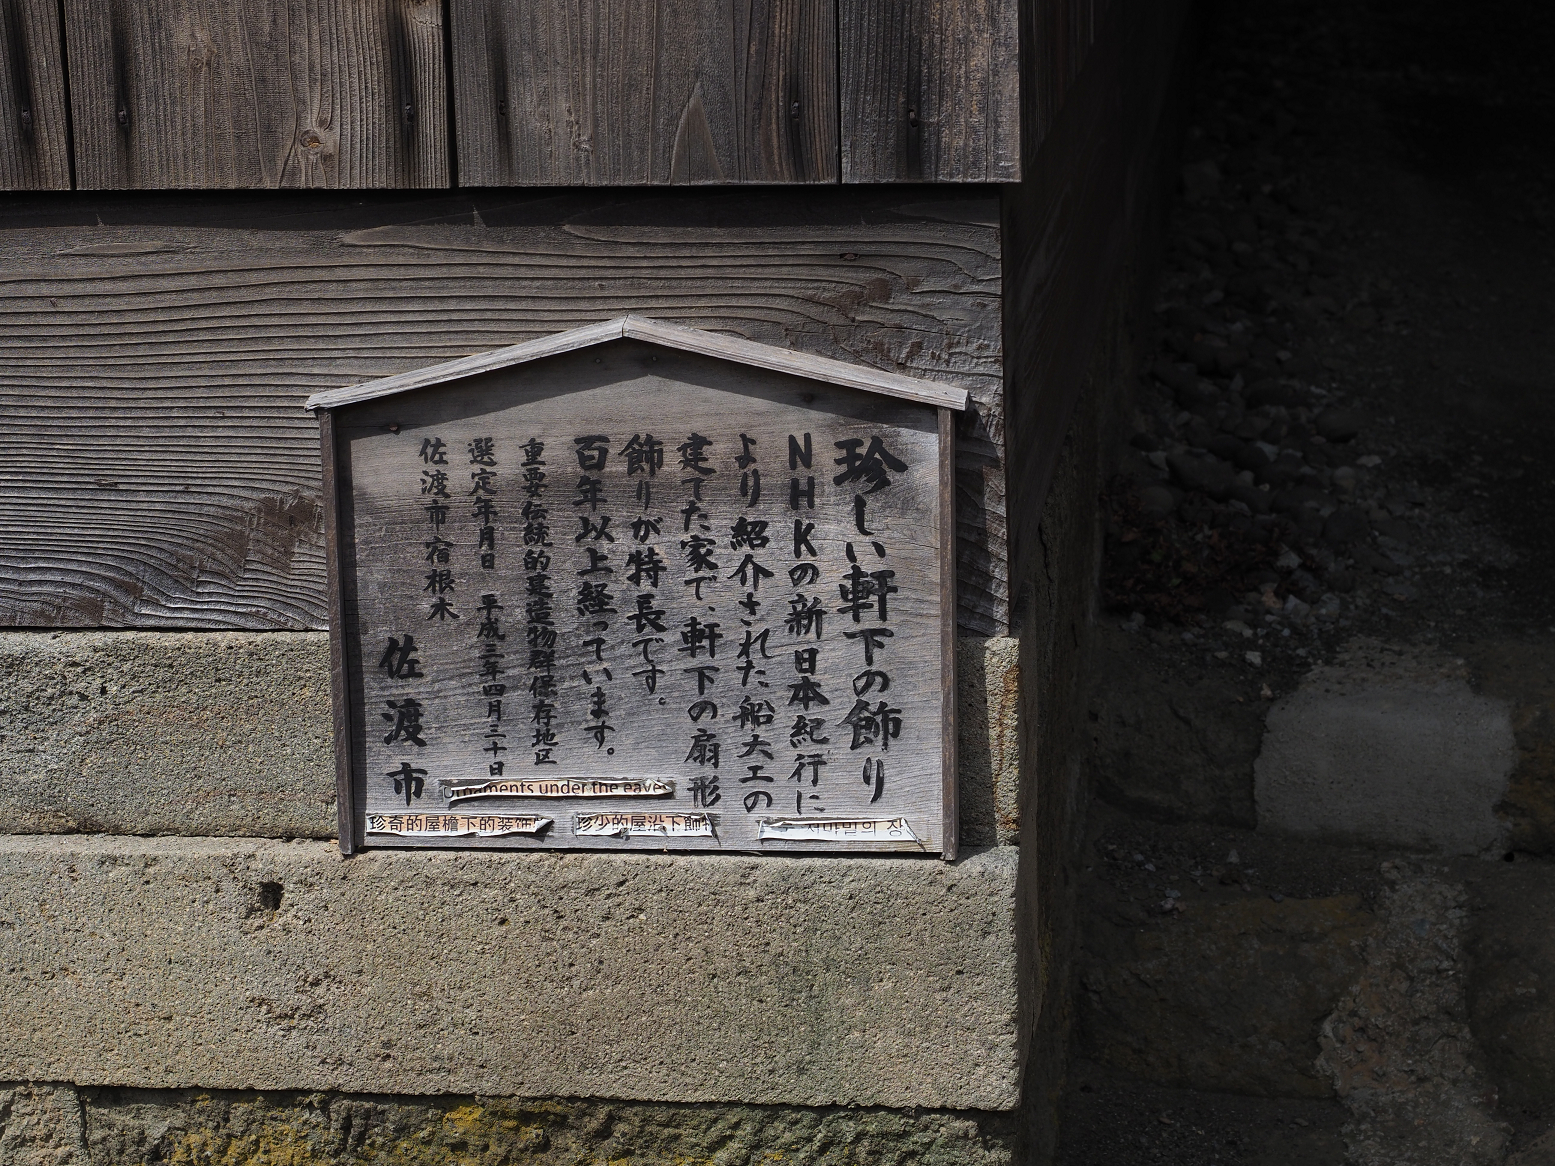 珍しい軒下の飾り
NHKの新日本紀行に
より紹介された船大工の
建てた家で、軒下の扇形
飾りが特長です。
百年以上経っています。
重要伝統的建造物群保存地区
選定年月日 平成三年四月三十日
佐渡市宿根木
佐渡市
under the eave
珍奇的屋檐下的装饰
珍少的屋沿下飾